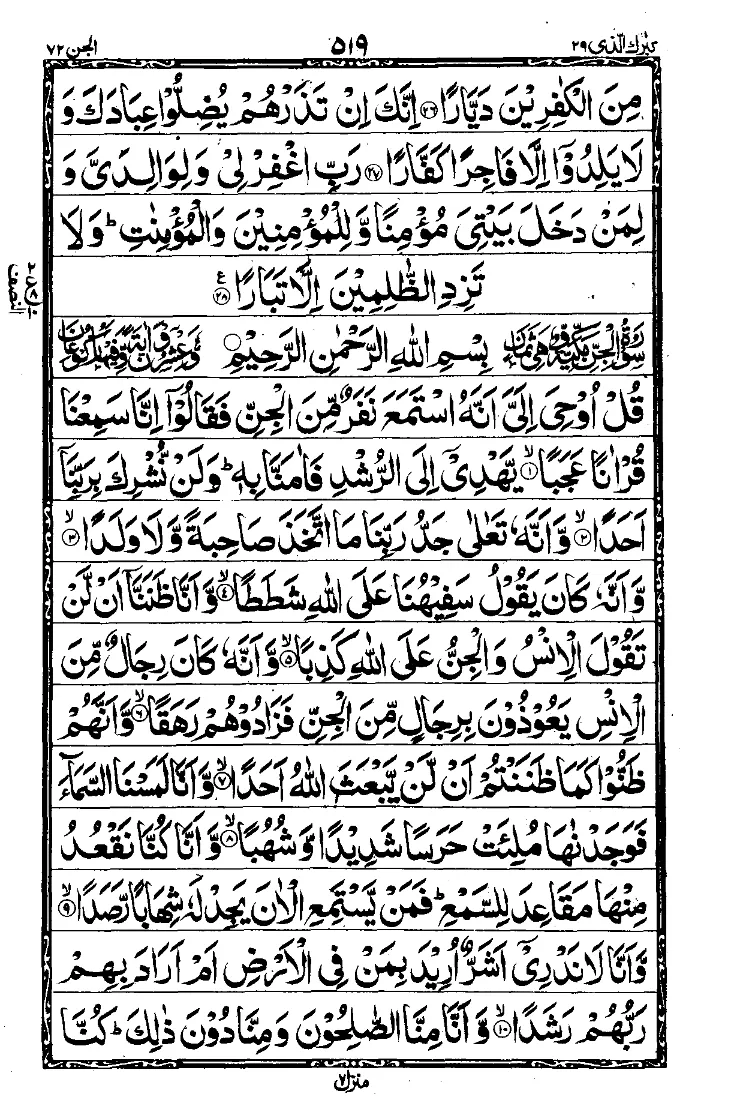 تبٰرك الذی ٢٩ ٥١٩ الجن ٧٢
مِنَ الْكٰفِرِيْنَ دَيَّارًا ﴿٢٦﴾ اِنَّكَ اِنْ تَذَرْهُمْ يُضِلُّوْا عِبَادَكَ وَ
لَا يَلِدُوْۤا اِلَّا فَاجِرًا كَفَّارًا ﴿٢٧﴾ رَبِّ اغْفِرْ لِیْ وَ لِوَالِدَیَّ وَ
لِمَنْ دَخَلَ بَيْتِیَ مُؤْمِنًا وَّ لِلْمُؤْمِنِيْنَ وَ الْمُؤْمِنٰتِ ؕ وَ لَا
تَزِدِ الظّٰلِمِيْنَ اِلَّا تَبَارًا ﴿٢٨﴾ ع
سُوْرَةُ الْجِنِّ مَكِّيَّةٌ وَّهِیَ ثَمَانٌ بِسْمِ اللّٰهِ الرَّحْمٰنِ الرَّحِيْمِ وَّعِشْرُوْنَ اٰيَةً وَّفِيْهَا رُكُوْعَانِ
قُلْ اُوْحِیَ اِلَیَّ اَنَّهُ اسْتَمَعَ نَفَرٌ مِّنَ الْجِنِّ فَقَالُوْۤا اِنَّا سَمِعْنَا
قُرْاٰنًا عَجَبًا ۙ﴿١﴾ يَّهْدِیْۤ اِلَی الرُّشْدِ فَاٰمَنَّا بِهٖ ؕ وَ لَنْ نُّشْرِكَ بِرَبِّنَاۤ
اَحَدًا ۙ﴿٢﴾ وَّ اَنَّهٗ تَعٰلٰی جَدُّ رَبِّنَا مَا اتَّخَذَ صَاحِبَةً وَّ لَا وَلَدًا ۙ﴿٣﴾
وَّ اَنَّهٗ كَانَ يَقُوْلُ سَفِيْهُنَا عَلَی اللّٰهِ شَطَطًا ۙ﴿٤﴾ وَّ اَنَّا ظَنَنَّاۤ اَنْ لَّنْ
تَقُوْلَ الْاِنْسُ وَ الْجِنُّ عَلَی اللّٰهِ كَذِبًا ۙ﴿٥﴾ وَّ اَنَّهٗ كَانَ رِجَالٌ مِّنَ
الْاِنْسِ يَعُوْذُوْنَ بِرِجَالٍ مِّنَ الْجِنِّ فَزَادُوْهُمْ رَهَقًا ۙ﴿٦﴾ وَّ اَنَّهُمْ
ظَنُّوْا كَمَا ظَنَنْتُمْ اَنْ لَّنْ يَّبْعَثَ اللّٰهُ اَحَدًا ۙ﴿٧﴾ وَّ اَنَّا لَمَسْنَا السَّمَآءَ
فَوَجَدْنٰهَا مُلِئَتْ حَرَسًا شَدِيْدًا وَّ شُهُبًا ۙ﴿٨﴾ وَّ اَنَّا كُنَّا نَقْعُدُ
مِنْهَا مَقَاعِدَ لِلسَّمْعِ ؕ فَمَنْ يَّسْتَمِعِ الْاٰنَ يَجِدْ لَهٗ شِهَابًا رَّصَدًا ۙ﴿٩﴾
وَّ اَنَّا لَا نَدْرِیْۤ اَشَرٌّ اُرِيْدَ بِمَنْ فِی الْاَرْضِ اَمْ اَرَادَ بِهِمْ
رَبُّهُمْ رَشَدًا ۙ﴿١٠﴾ وَّ اَنَّا مِنَّا الصّٰلِحُوْنَ وَ مِنَّا دُوْنَ ذٰلِكَ ؕ كُنَّا
منزل ٧
النصف